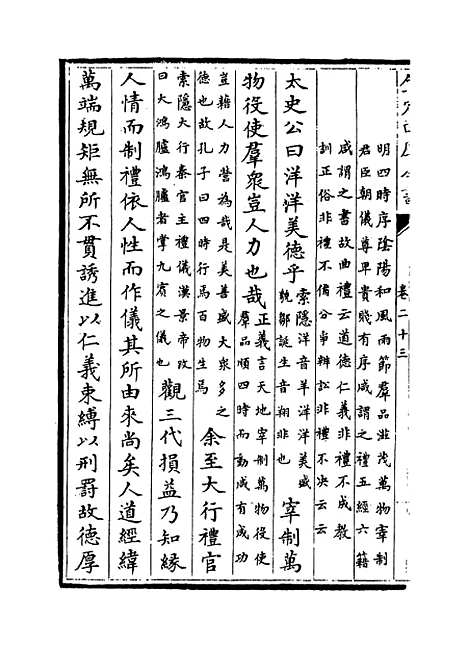 卷二十三
明四時序陰陽和風雨節羣品滋茂萬物宰制
君臣朝儀尊卑貴賤有序咸謂之禮五經六籍
咸謂之書故曲禮云道德仁義非禮不成教
訓正俗非禮不備分爭辯訟非禮不決云云
太史公曰洋洋美德乎索隱洋音羊洋洋美盛皃鄒誕生音翔非也宰制萬
物役使羣衆豈人力也哉正義言天地宰制萬物役使羣品順四時而動咸有成功
豈藉人力營為哉是美善盛大衆多之德也故孔子曰四時行焉百物生焉余至大行禮官
索隱大行秦官主禮儀漢景帝改曰大鴻臚鴻臚者掌九賓之儀也觀三代損益乃知縁
人情而制禮依人性而作儀其所由來尚矣人道經緯
萬端規矩無所不貫誘進以仁義束縛以刑罰故德厚